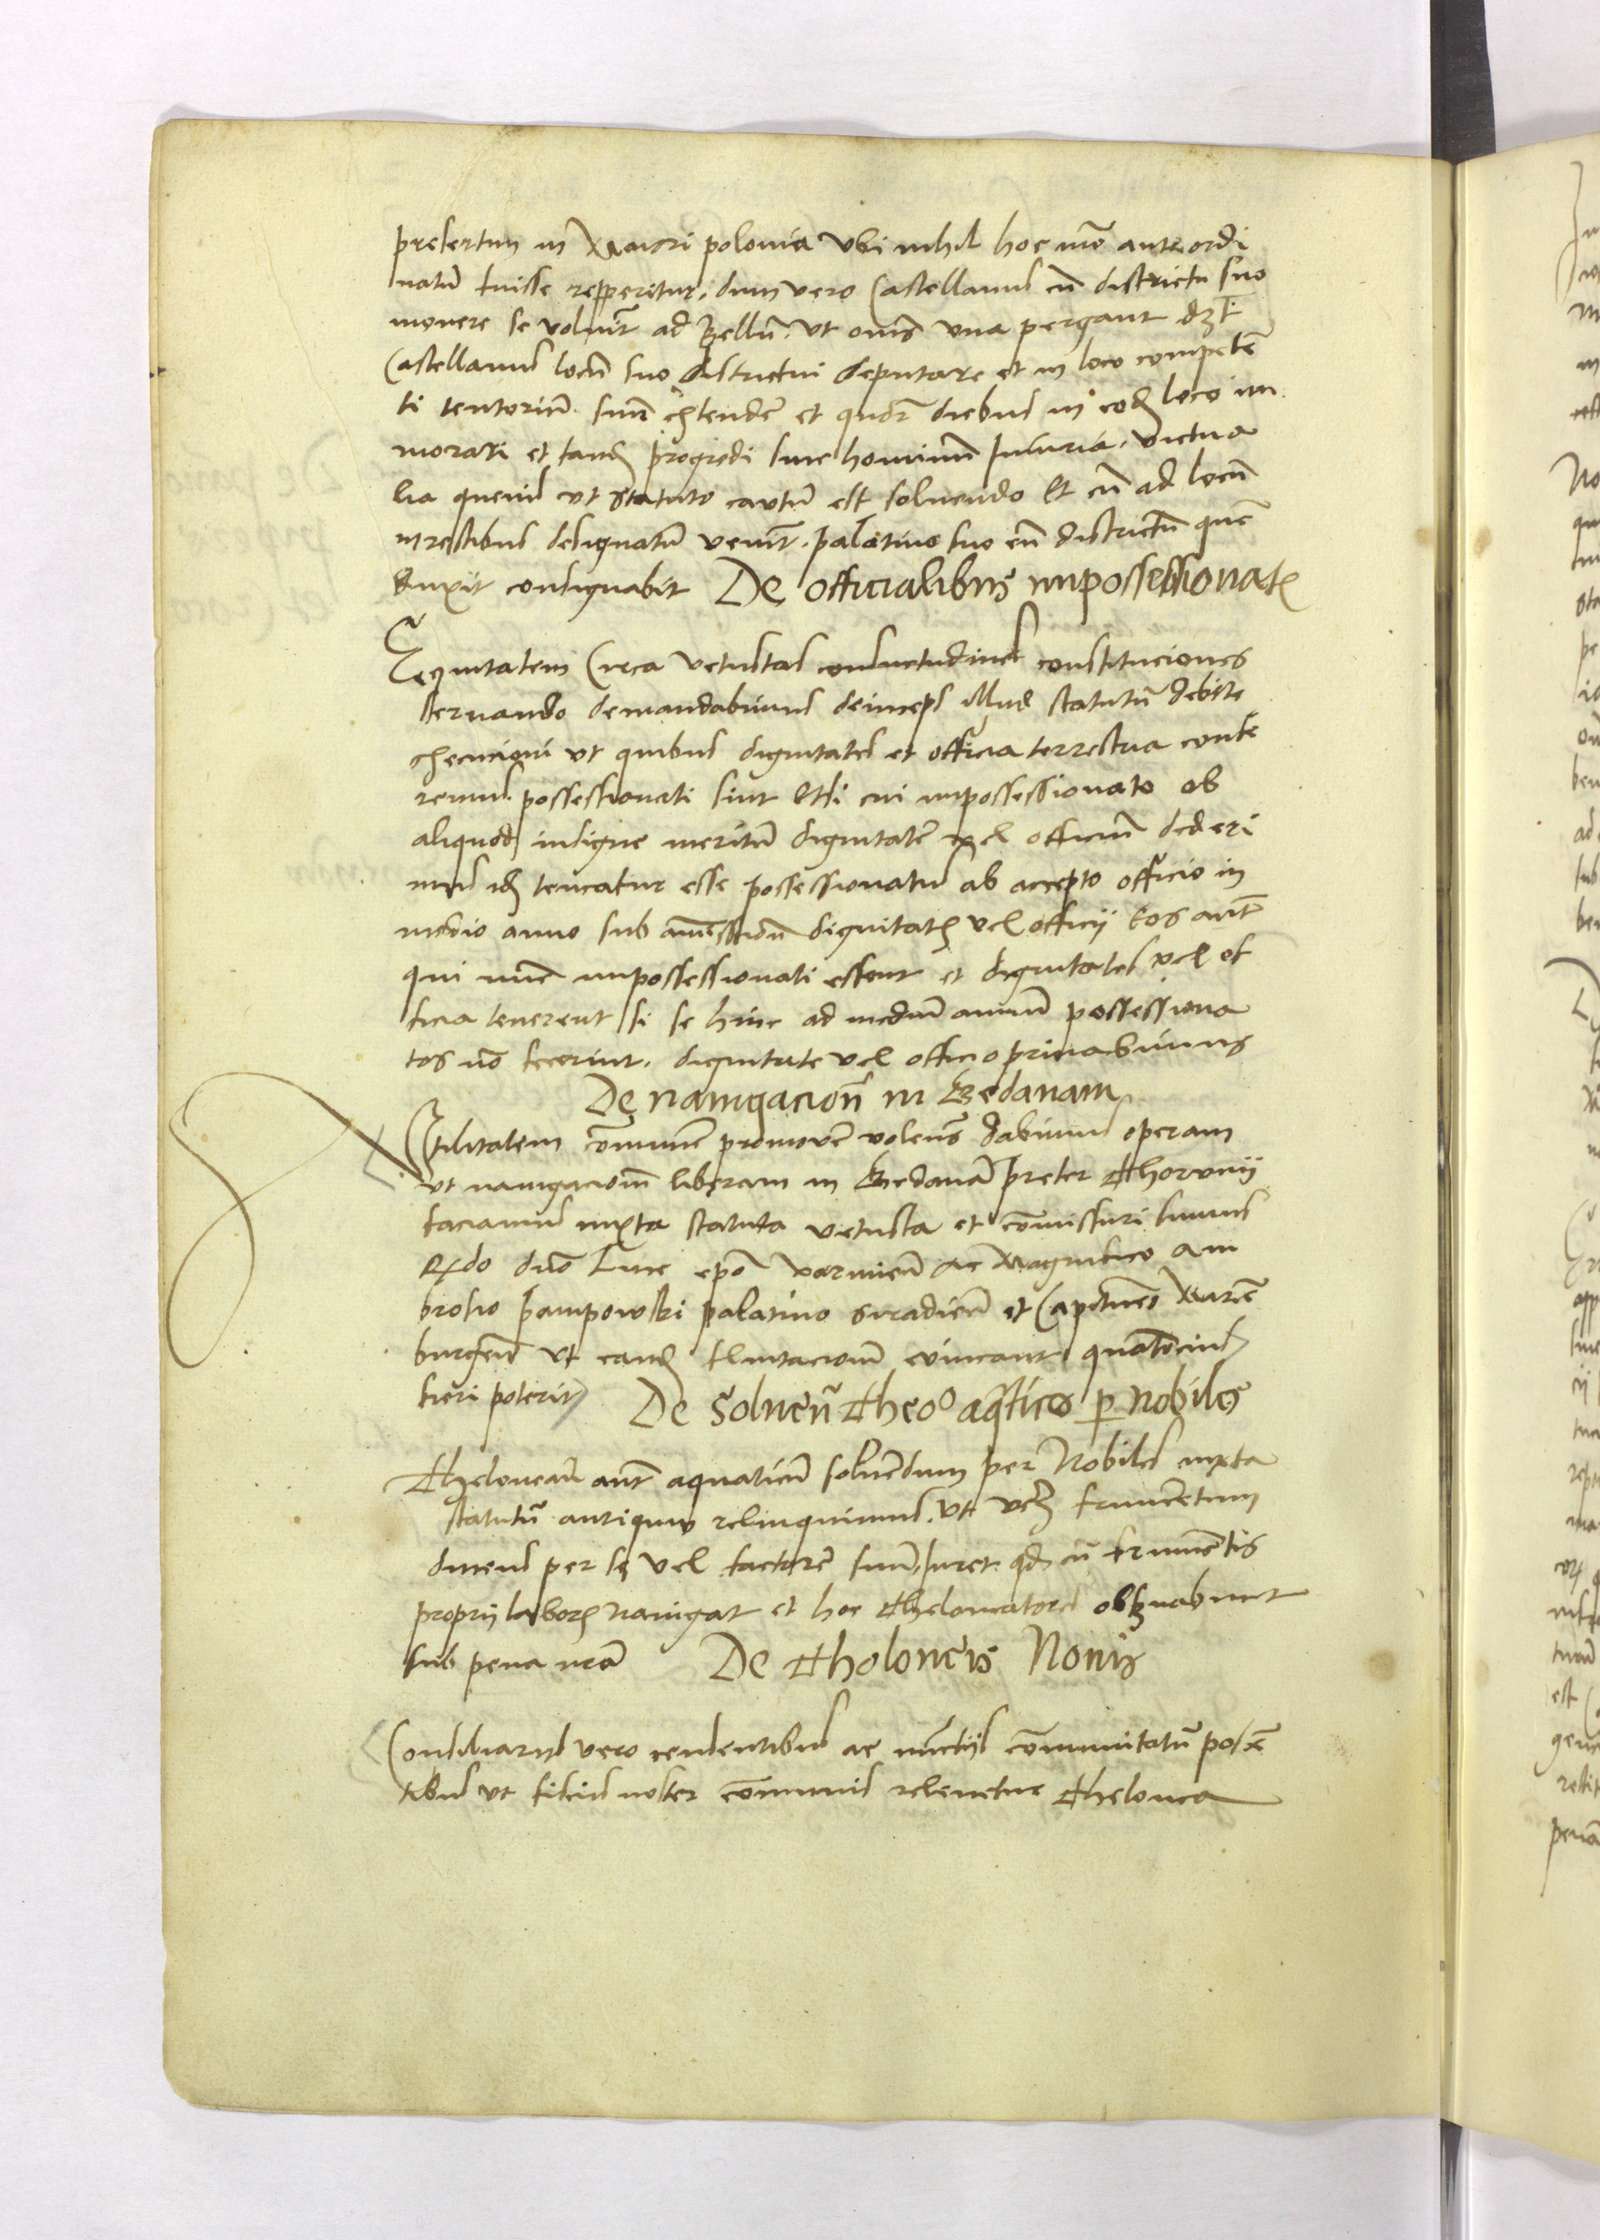 presertim in Maiori polonia Vbi nihil hoc modo ante ordi
natum fuisse repperitur, dum vero Castellanus cum districtu suo
mouere se voluerit ad Bellum. Vt omnes vna pergant debet
Castellanus locum suo districtui deputare et in loco competen
ti tentorium suum extendere et quatuor diebus in eodem loco im
morari et tandem progredi sine hominum Iniuria, victua
lia queuis vt statuto cautum est soluendo Et cum ad locum
designatum venerit. palatino suo eum districtum quem
duxit consignabit De officialibus impossessionatis
Equitatem Circa Vetustas consuetudines constituciones
seruando demandabimus deinceps illud statutum debite
execucioni vt quibus dignitates et officia terrestria confe
remus possessionati sint Etsi cui impossessionato ob
aliquod insigne meritum dignitatem vel officium dederi
mus idem teneatur esse possessionatus ab accepto officio in
medio anno sub amissione dignitatis vel officij Eos autem
qui nunc impossessionati essent et dignitates vel of
ficia tenerent si se hinc ad medium annum possessiona
tos non fecerint. dignitate vel officio priuabimus
De nauigacione in Gedanam
Vtilitatem communem promouere volentes dabimus operam
vt nauigacionem liberam in Gedanam preter Thorunij
faciamus iuxta statuta vetusta et commissuri sumus
Rdo dno Luce epo varmien ac Magnifico am
brosio pampowski palatino siradien et Capitaneo Marie
burgen vt eandem fluitacionem euincant quantocius
fieri poterit De Soluen Theo aqtico per Nobiles
Theloneum autem aquaticum soluendum per Nobiles iuxta
statutum antiquum relinquimus. Vt videlicet frumentum
ducens per se vel factorem suum, Iuret quod cum frumentis
proprij laboris nauigat et hoc Theloneatores obseruabunt
sub pena nra De Tholoneis Nouis
Consiliarijs vero censentibus ac nuncijs communitatum poscen
tibus vt fiscus noster communis releuetur Thelonea